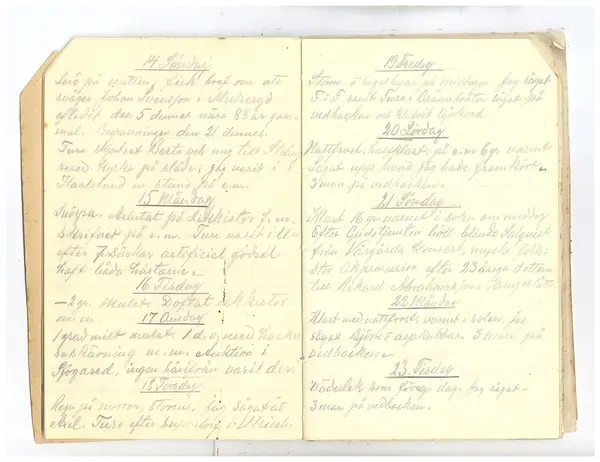 14 Söndag
Snö på natten, fick bref om att
svåger Johan Svensson i Mulseryd
aflidit den 5 dennes nära 88 år gam-
mal. Begravningen den 21 dennes.
Ture skjutsat Berta och mig till
kyrka på släde, jag varit i
en stund på e.m.
15 Måndag
Snöyra. Arbetat på Likkistor f.m.
skrifvit på e.m. Ture varit i Ulr
efter 7 säckar artificiel gödsel
haft båda hästarne.
16 Tisdag
– 2 gr. mulet Dottat likkistor
m.m.
17 Onsdag
1 grad mildt mulet. 1 d.o. med hacke
m.m. Auktion i
Sjögared, ingen härifrån varit der.
18 Torsdag
Regn på morron, storm. jag sågat åt
Ture efter i Ulrich.
19 Fredag
Storm o byar på jag sågat
F.i.F. samt Ture i sågat på
vedbacken
20 Lördag
Nattfrost, halfklart, på e.m 6 gr. varmt
Sågat upp hvad jag hade framkört.
3 man på vedbacken.
21 Söndag
Klart 16 gr. varmt i solen om middag
Efter Gudstjensten höll Salquist
från Vårgårda Konsert, mycke folk,
stor likprosession efter 23 åriga dottern
till Rikard Abrahamsson,
22 Måndag
Klart med nattfrost, varmt i solen. jag
sågat Björk o aspkubbar. 3 man på
vedbacken.
23. Tisdag
Väderlek som förege dag. jag sågat.
3 man på vedbacken.